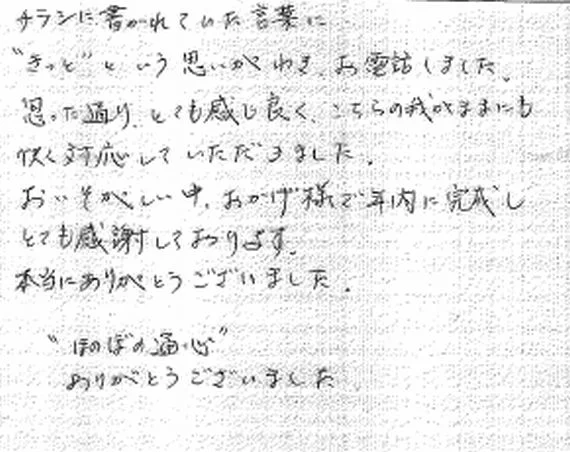 チラシに書かれていた言葉に
"きっと"という思いがわき、お電話しました。
思った通り、とても感じ良く、こちらの我がままにも
快く対応していただきました。
おいそがしい中、おかげ様で年内に完成し
とても感謝しております。
本当にありがとうございました。
"ほのぼの通心"
ありがとうございました